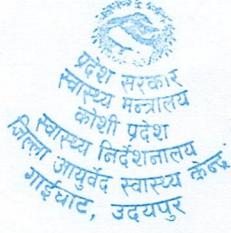 प्रदेश सरकार
स्वास्थ्य मन्त्रालय
कोशी प्रदेश
स्वास्थ्य निर्देशनालय
जिल्ला आयुर्वेद स्वास्थ्य केन्द्र
गाईघाट, उदयपुर